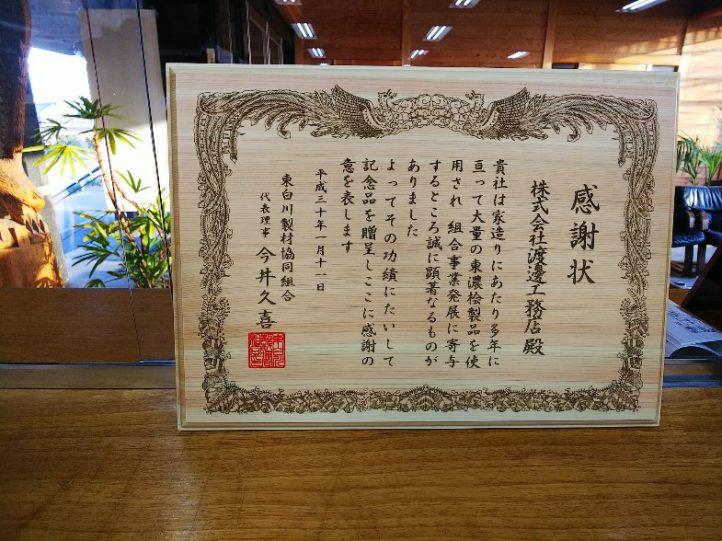 感謝状
株式会社渡邊工務店 殿
貴社は家造りにあたり多年に
亘って大量の東濃桧製品を使
用され 組合事業発展に寄与
するところ誠に顕著なるものが
ありました
よってその功績にたいして
記念品を贈呈しここに感謝の
意を表します
平成三十年一月十一日
東白川製材協同組合
代表理事 今井久喜